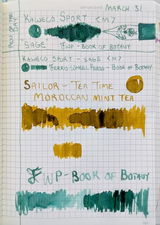 MARCH 31
PEN OF THE DAY
KAWECO SPORT <M>
SAGE FWP - BOOK OF BOTANY
KAWECO SPORT - SAGE <M>
FERRIS WHEEL PRESS - BOOK OF BOTANY
SAILOR - TEA TIME
MOROCCAN MINT TEA
FWP - BOOK OF BOTANY